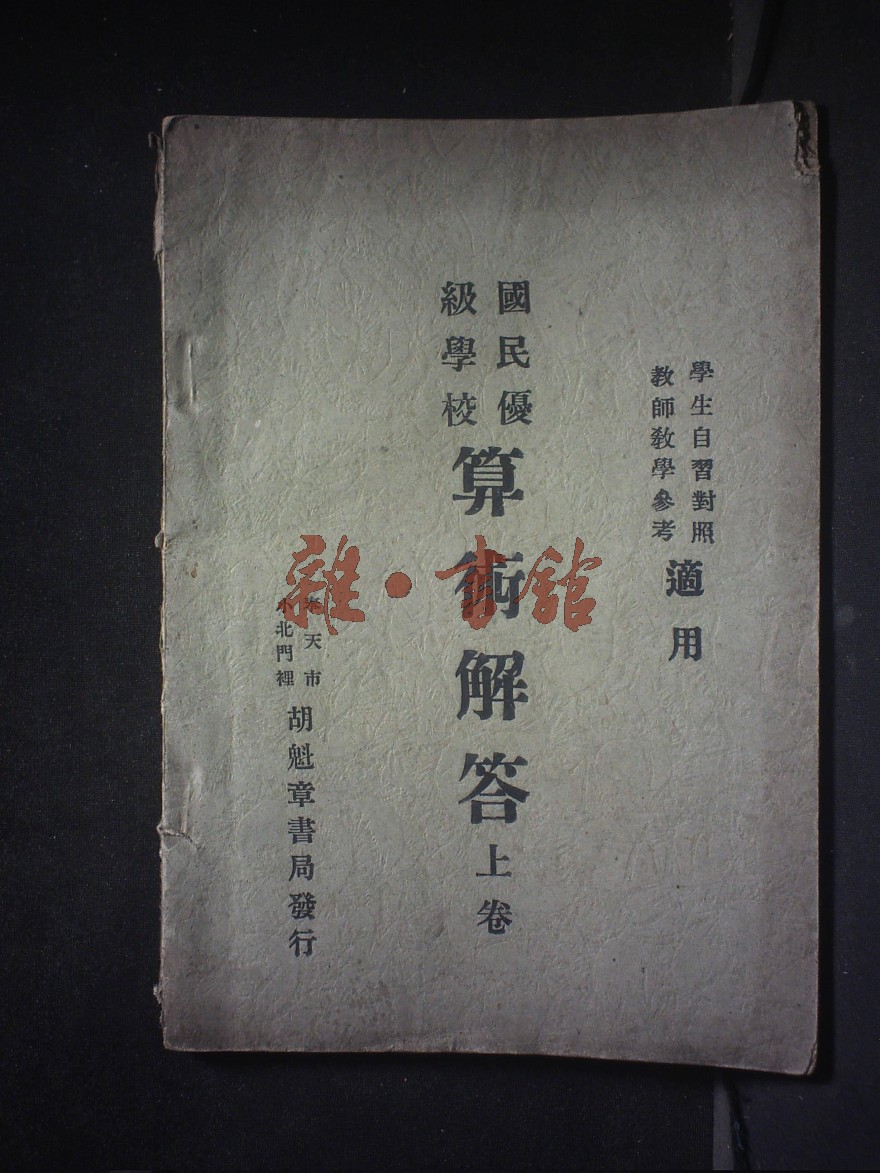 學生自習對照
教師教學參考
適用
國民優
級學校
算術解答上卷
奉天市
小北門裡
胡魁章書局發行
雜·書館